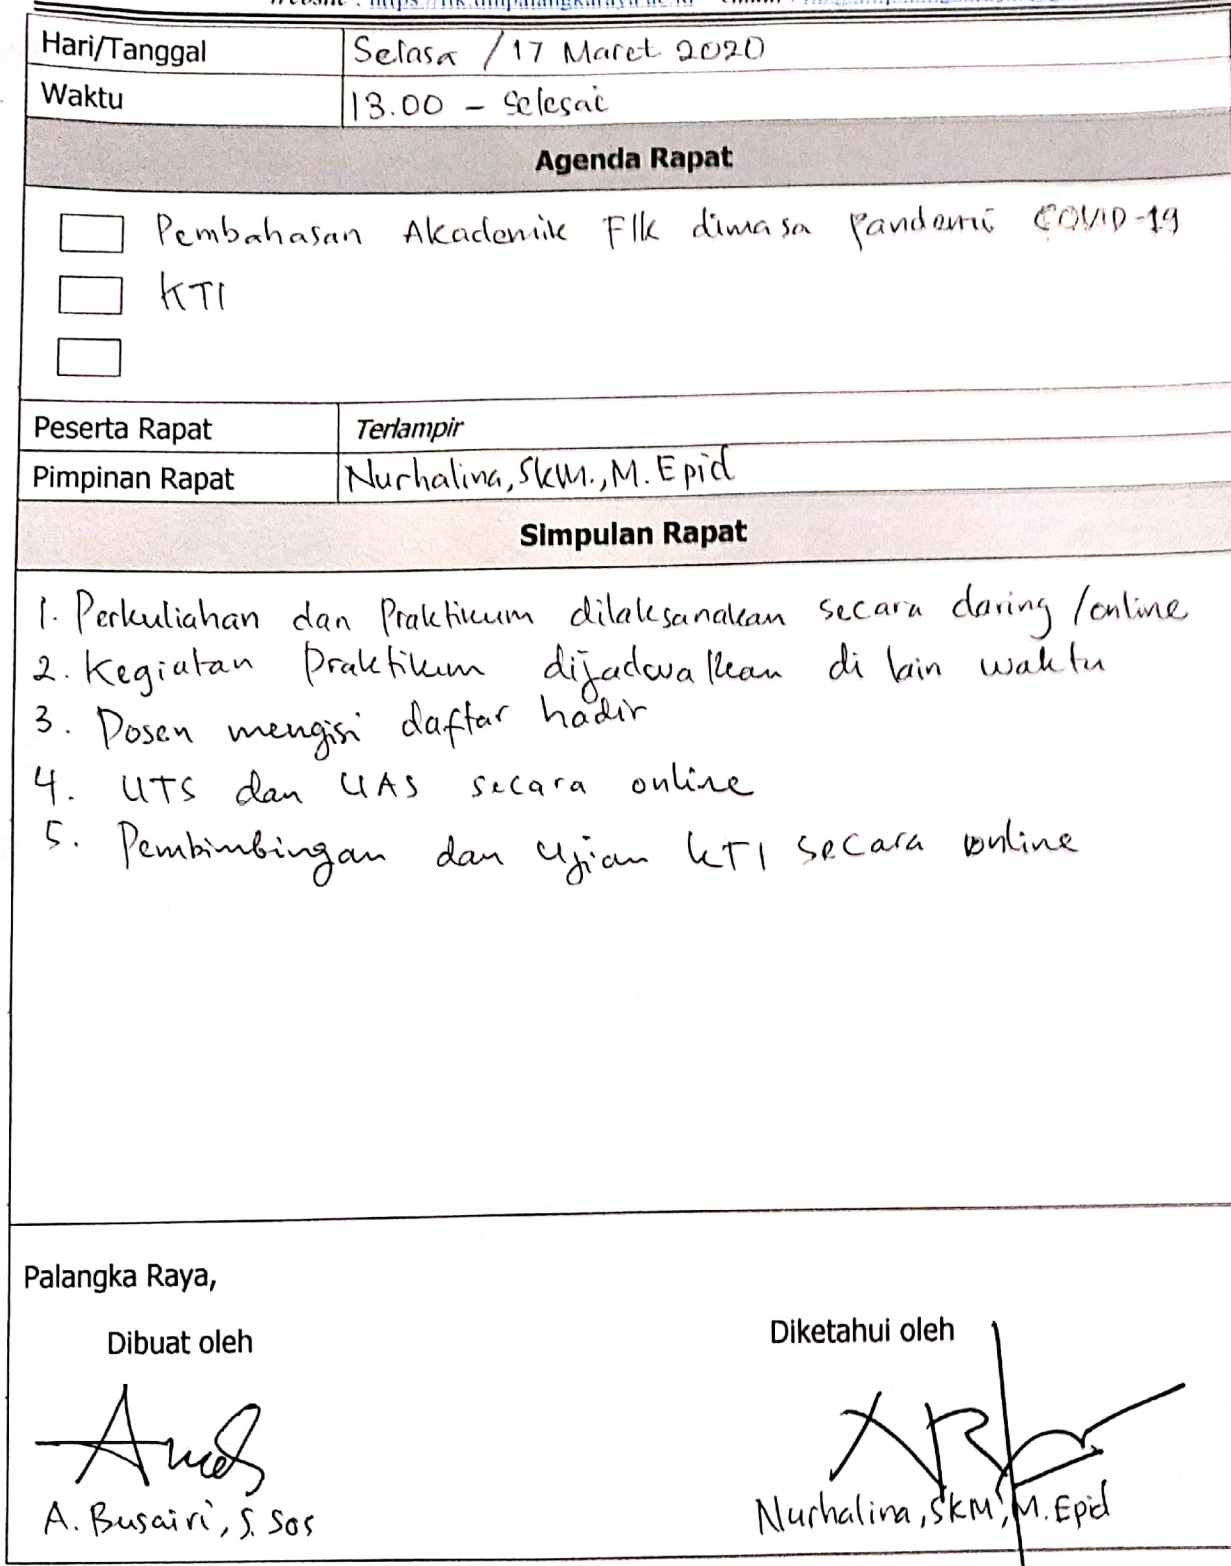 Hari/Tanggal Selasa / 17 Maret 2020
Waktu 13.00 - Selesai
Agenda Rapat
Pembahasan Akademik FIK dimasa pandemi COVID-19
KTI
Peserta Rapat Terlampir
Pimpinan Rapat Nurhalina, SKM., M. Epid
Simpulan Rapat
1. Perkuliahan dan Praktikum dilaksanakan secara daring / online
2. Kegiatan Praktikum dijadwalkan di lain waktu
3. Dosen mengisi daftar hadir
4. UTS dan UAS secara online
5. Pembimbingan dan Ujian KTI secara online
Palangka Raya,
Dibuat oleh Diketahui oleh
A. Busairi, S. Sos Nurhalina, SKM, M. Epid